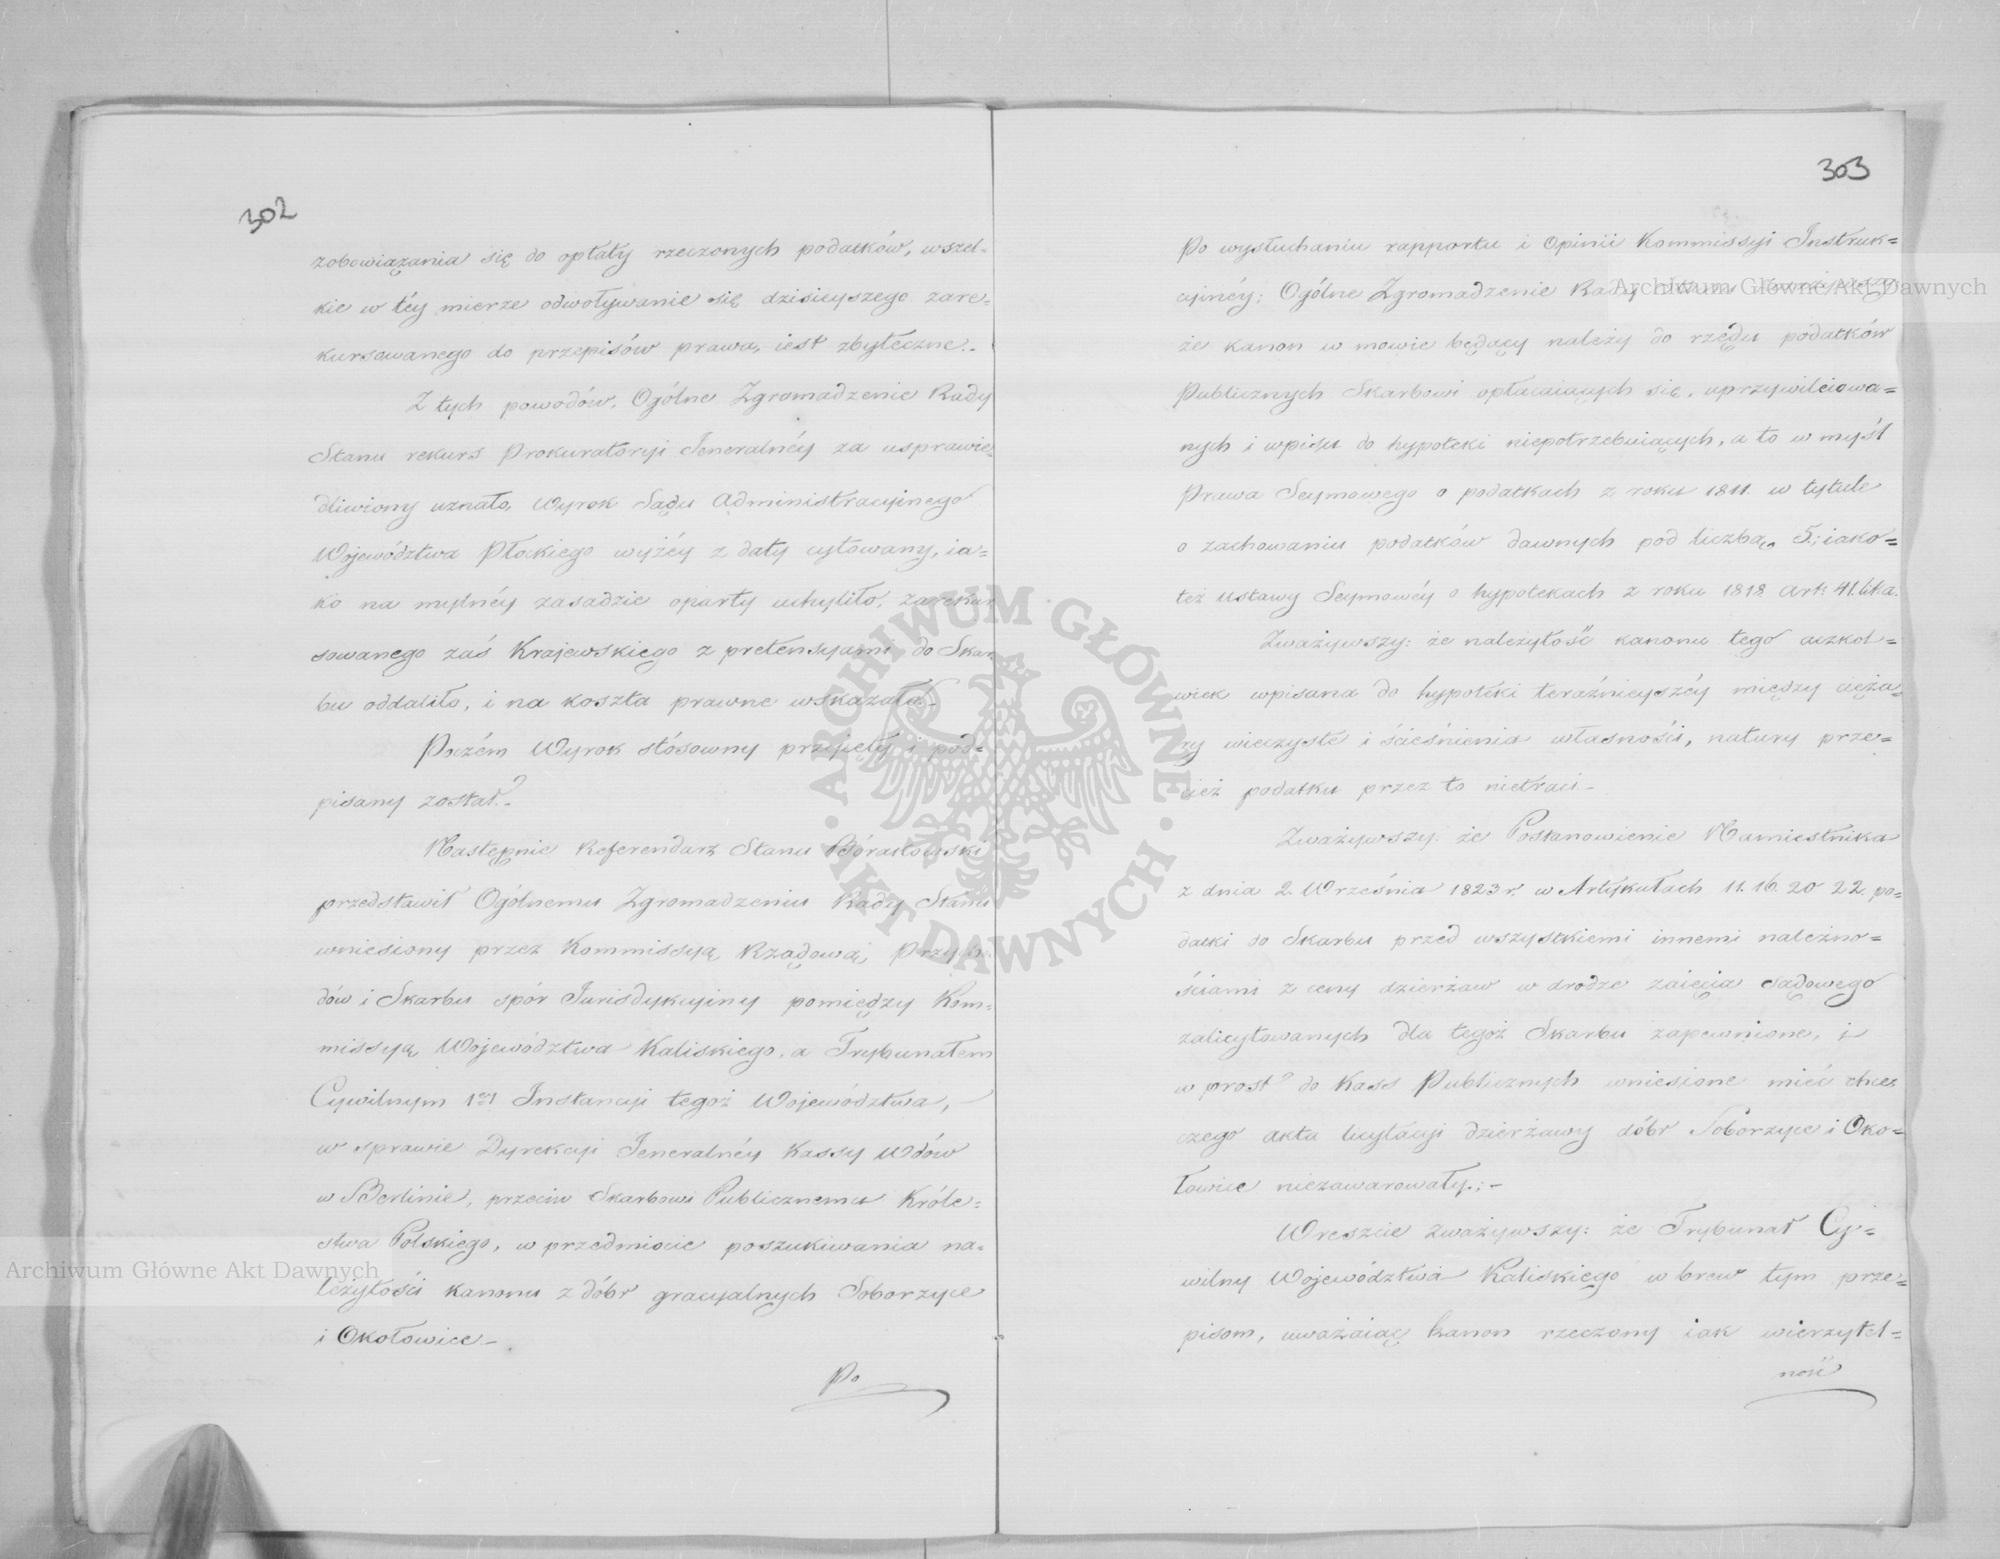 302
zobowiązania się do opłaty rzeczonych podatków, wszel-
kie w téy mierze odwoływanie się dzisieyszego zare-
kursowanego do przepisów prawa, iest zbyteczne.-
Z tych powodów, Ogólne Zgromadzenie Rady
Stanu rekurs Prokuratoryi Jeneralnéy za usprawie-
dliwiony uznało, Wyrok Sądu Administracyinego
Województwa Płockiego wyżéy z daty cytowany, ia=
ko na mylnéy zasadzie oparty uchyliło, zarekur
sowanego zaś Krajewskiego z pretensyami do Skar
bu oddaliło, i na koszta prawne wskazało.-
Poczém Wyrok stósowny przyięty i pod=
pisany został.-
Następnie Referendarz Stanu
przedstawił Ogólnemu Zgromadzeniu Rady Stanu
wniesiony przez Kommissyą Rządową Przycho
dów i Skarbu spór Jurisdykcyiny pomiędzy Kom-
missyą Województwa Kaliskiego, a Trybunałem
Cywilnym 1éy Instancyi tegoż Województwa,-
w sprawie Dyrekcyi Jeneralnéy Kassy Wdów
w Berlinie, przeciw Skarbowi Publicznemu Króle=
stwa Polskiego, w przedmiocie poszukiwania na-
leżytości kanonu z dóbr gracyalnych Soborzyce
i Okołowice-
Po
303
Po wysłuchaniu rapportu i Opinii Kommissyi Instruk=
cyinéy; Ogólne Zgromadzenie Rady Stanu
że kanon w mowie będący należy do rzędu podatków
Publicznych Skarbowi opłacaiących się, uprzywileiowa=
nych i wpisu do hypoteki niepotrzebuiących, a to w myśl
Prawa Seymowego o podatkach z roku 1811. w tytule
o zachowaniu podatków dawnych pod liczbą 5.; iako=
też Ustawy Seymowéy o hypotekach z roku 1818 Art: 41. lit. a.
Zważywszy: że należytość kanonu tego aczkol=
wiek wpisana do hypoteki teraźnieyszéy między cięża-
ry wieczyste i ścieśnienia własności, natury prze=
cież podatku przez to nietraci-
Zważywszy: że Postanowienie Namiestnika
z dnia 2. Września 1823 r. w Artykułach 11. 16. 20 22. po=
datki do Skarbu przed wszystkiemi innemi należno=
ściami z ceny dzierżaw w drodze zaięcia Sądowego
zalicytowanych dla tegoż Skarbu zapewnione, i
w prost do Kass Publicznych wniesione mieć chce,
czego akta licytacyi dzierżawy dóbr Soborzyce i Oko=
łowice niezawarowały.;-
Wreszcie zważywszy: że Trybunał Cy=
wilny Województwa Kaliskiego wbrew tym prze=
pisom, uważaiąc kanon rzeczony iak wierzytel=
ność
ARCHIWUM GŁÓWNE · AKT DAWNYCH ·
Archiwum Główne Akt Dawnych
Archiwum Główne Akt Dawnych